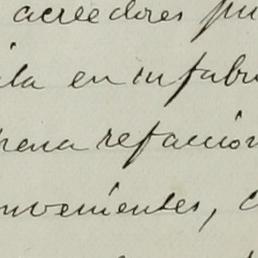 acreedores pu
ila en su fabri
rena refaccion
nvenientes, c